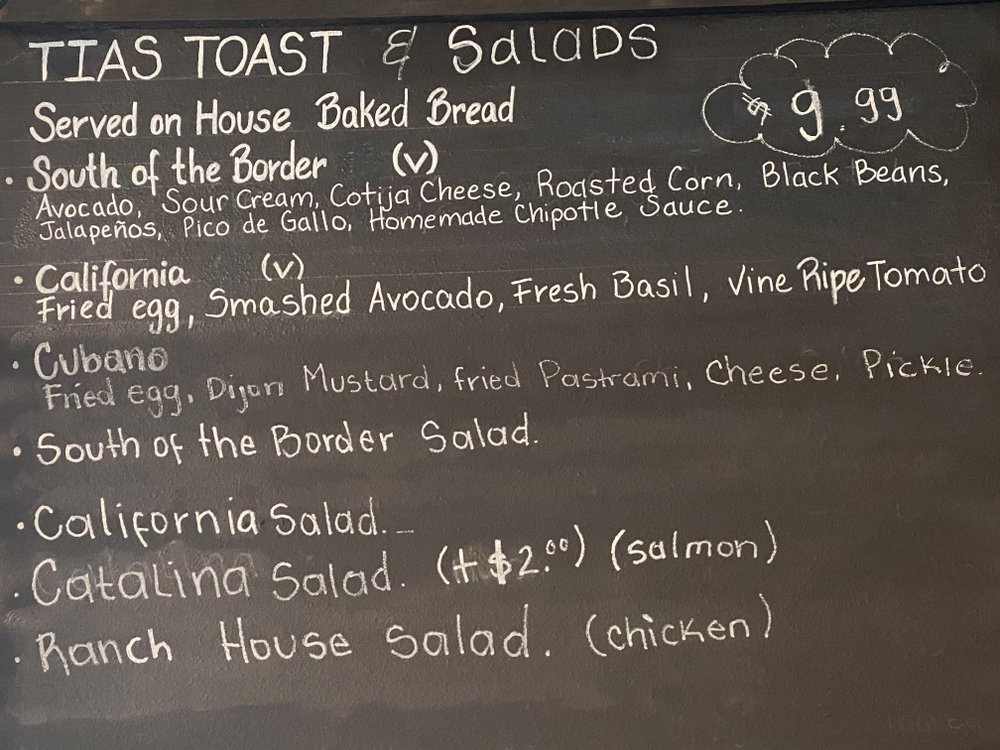 TIAS TOAST & SALADS
$ 9.99
Served on House Baked Bread
• South of the Border (v)
Avocado, Sour Cream, Cotija Cheese, Roasted Corn, Black Beans,
Jalapeños, Pico de Gallo, Homemade Chipotle Sauce.
• California (v)
Fried egg, Smashed Avocado, Fresh Basil, Vine Ripe Tomato
• Cubano
Fried egg, Dijon Mustard, fried Pastrami, Cheese, Pickle.
• South of the Border Salad.
• California Salad.
• Catalina Salad. (+ $2.00) (salmon)
• Ranch House Salad. (chicken)